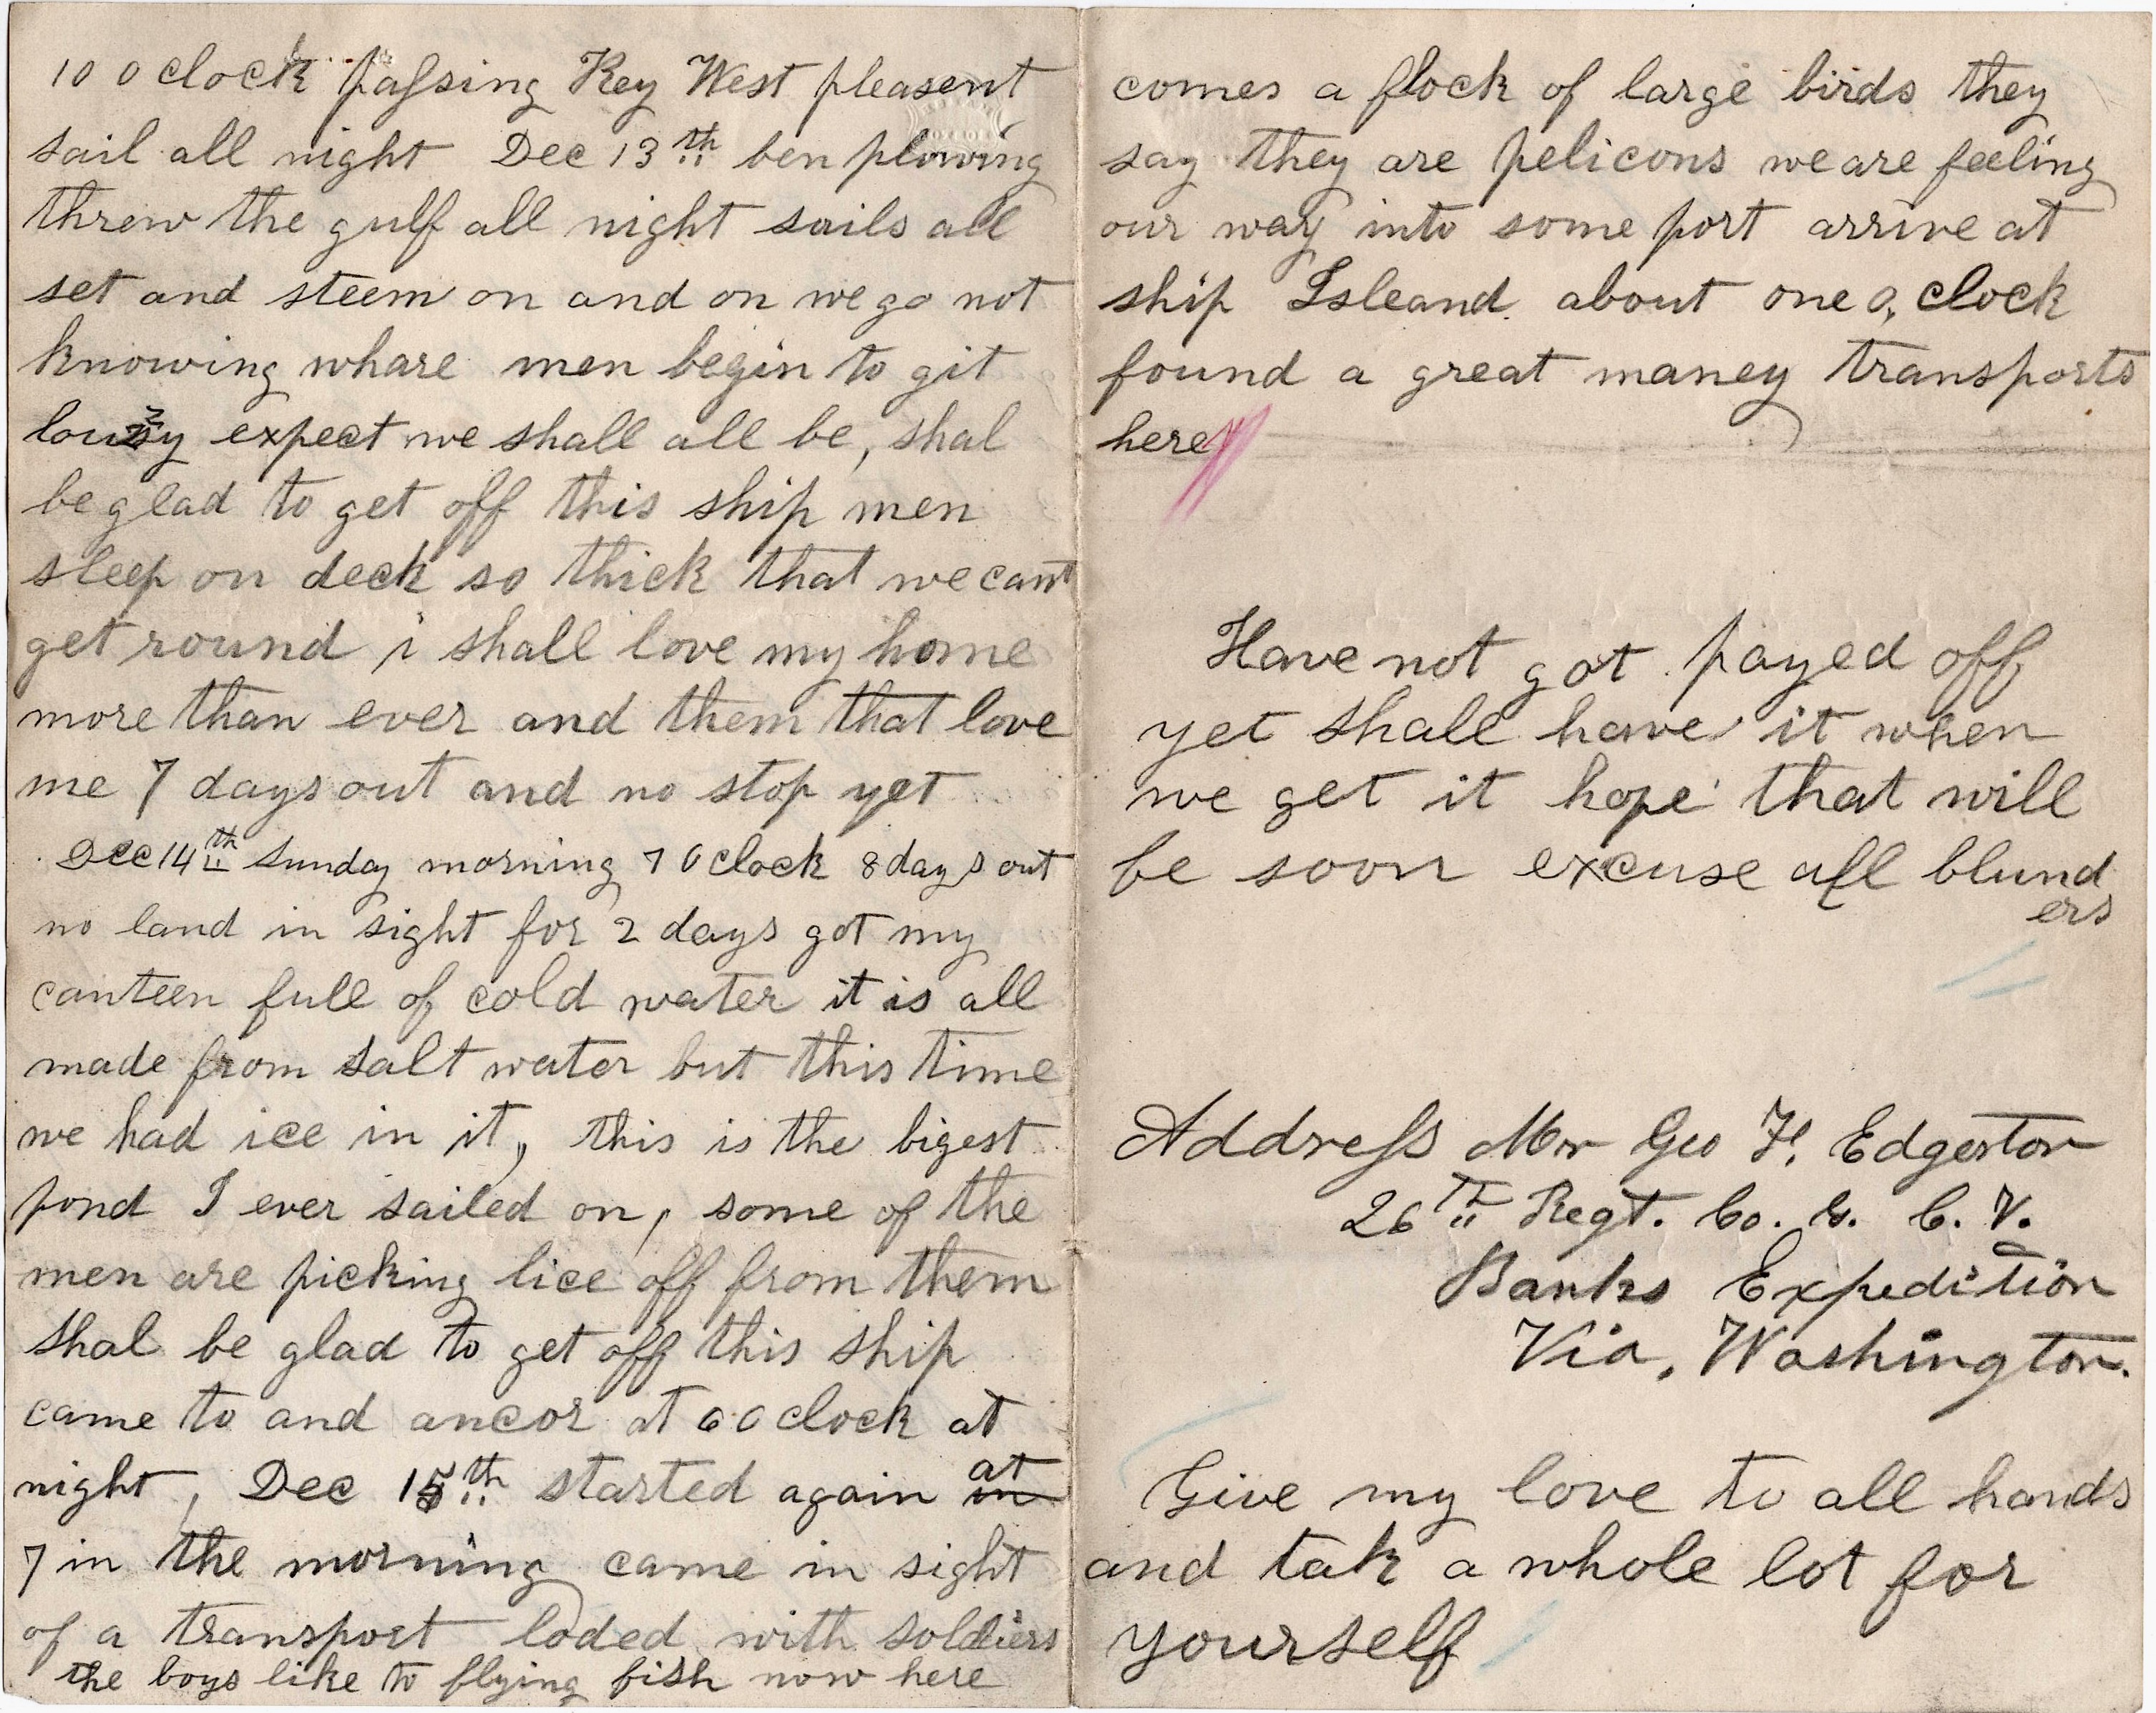 10 O clock passing Key West pleasent
sail all night Dec 13th ben plowing
threw the gulf all night sails all
set and steem on and on we go not
knowing whare men begin to git
louzy expect we shall all be, shal
be glad to get off this ship men
sleep on deck so thick that we cant
get round i shall love my home
more than ever and them that love
me 7 days out and no stop yet
Dec 14th Sunday morning 7 O clock 8 days out
no land in sight for 2 days got my
canteen full of cold water it is all
made from salt water but this time
we had ice in it, this is the bigest
pond I ever sailed on, some of the
men are picking lice off from them
shal be glad to get off this ship
came to and ancor at 6 O clock at
night, Dec 15th started again at
7 in the morning came in sight
of a transport loded with soldiers
the boys like to flying fish now here
comes a flock of large birds they
say they are pelicons we are feeling
our way into some port arrive at
ship Isleand about one o, clock
found a great maney transports
here
Have not got payed off
yet shall have it when
we get it hope that will
be soon excuse all blund
ers
Address Mr Geo F. Edgerton
26TH Regt. Co. G. C. V.
Banks Expedition
Via, Washington.
Give my love to all hands
and tak a whole lot for
yourself